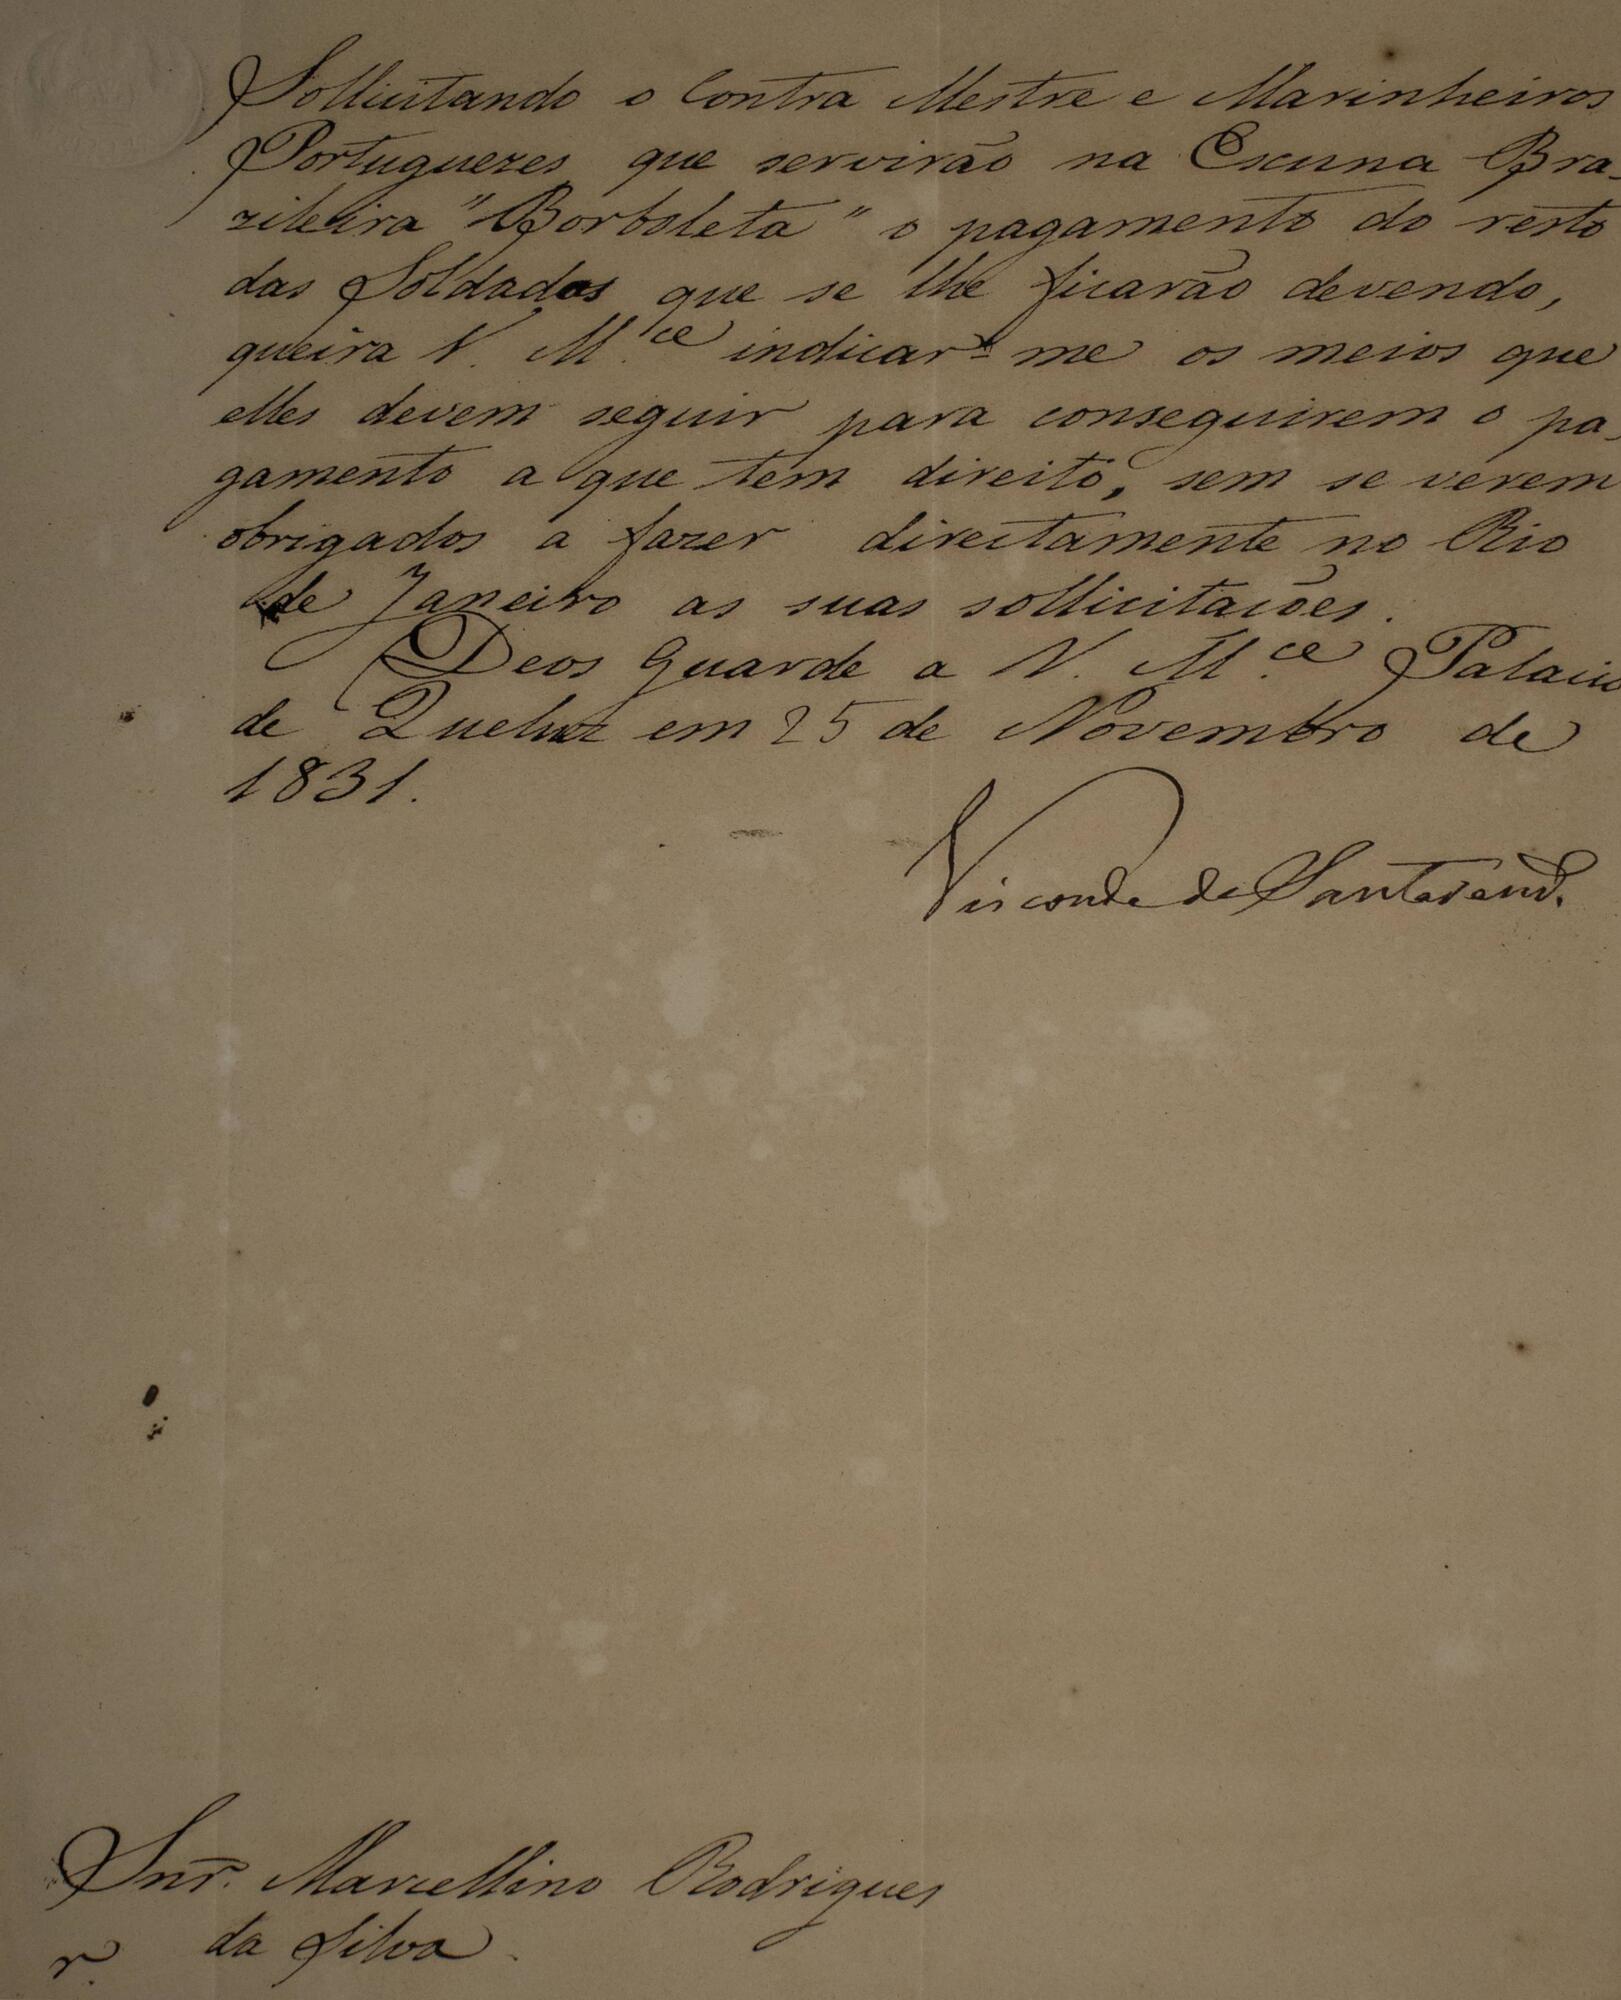 Sollicitando o Contra Mestre e Marinheiros
Portuguezes que servirão na Escuna Bra-
zileira "Borboleta" o pagamento do resto
das Soldadas que se lhe ficarão devendo,
queira V. M.ce indicar-me os meios que
elles devem seguir para conseguirem o pa-
gamento a que tem direito, sem se verem
obrigados a fazer directamente no Rio
de Janeiro as suas sollicitações.
Deos Guarde a V. M.ce Palacio
de Queluz em 25 de Novembro de
1831.
Visconde de Santarem.
Snr. Marcellino Rodrigues
da Silva
r.